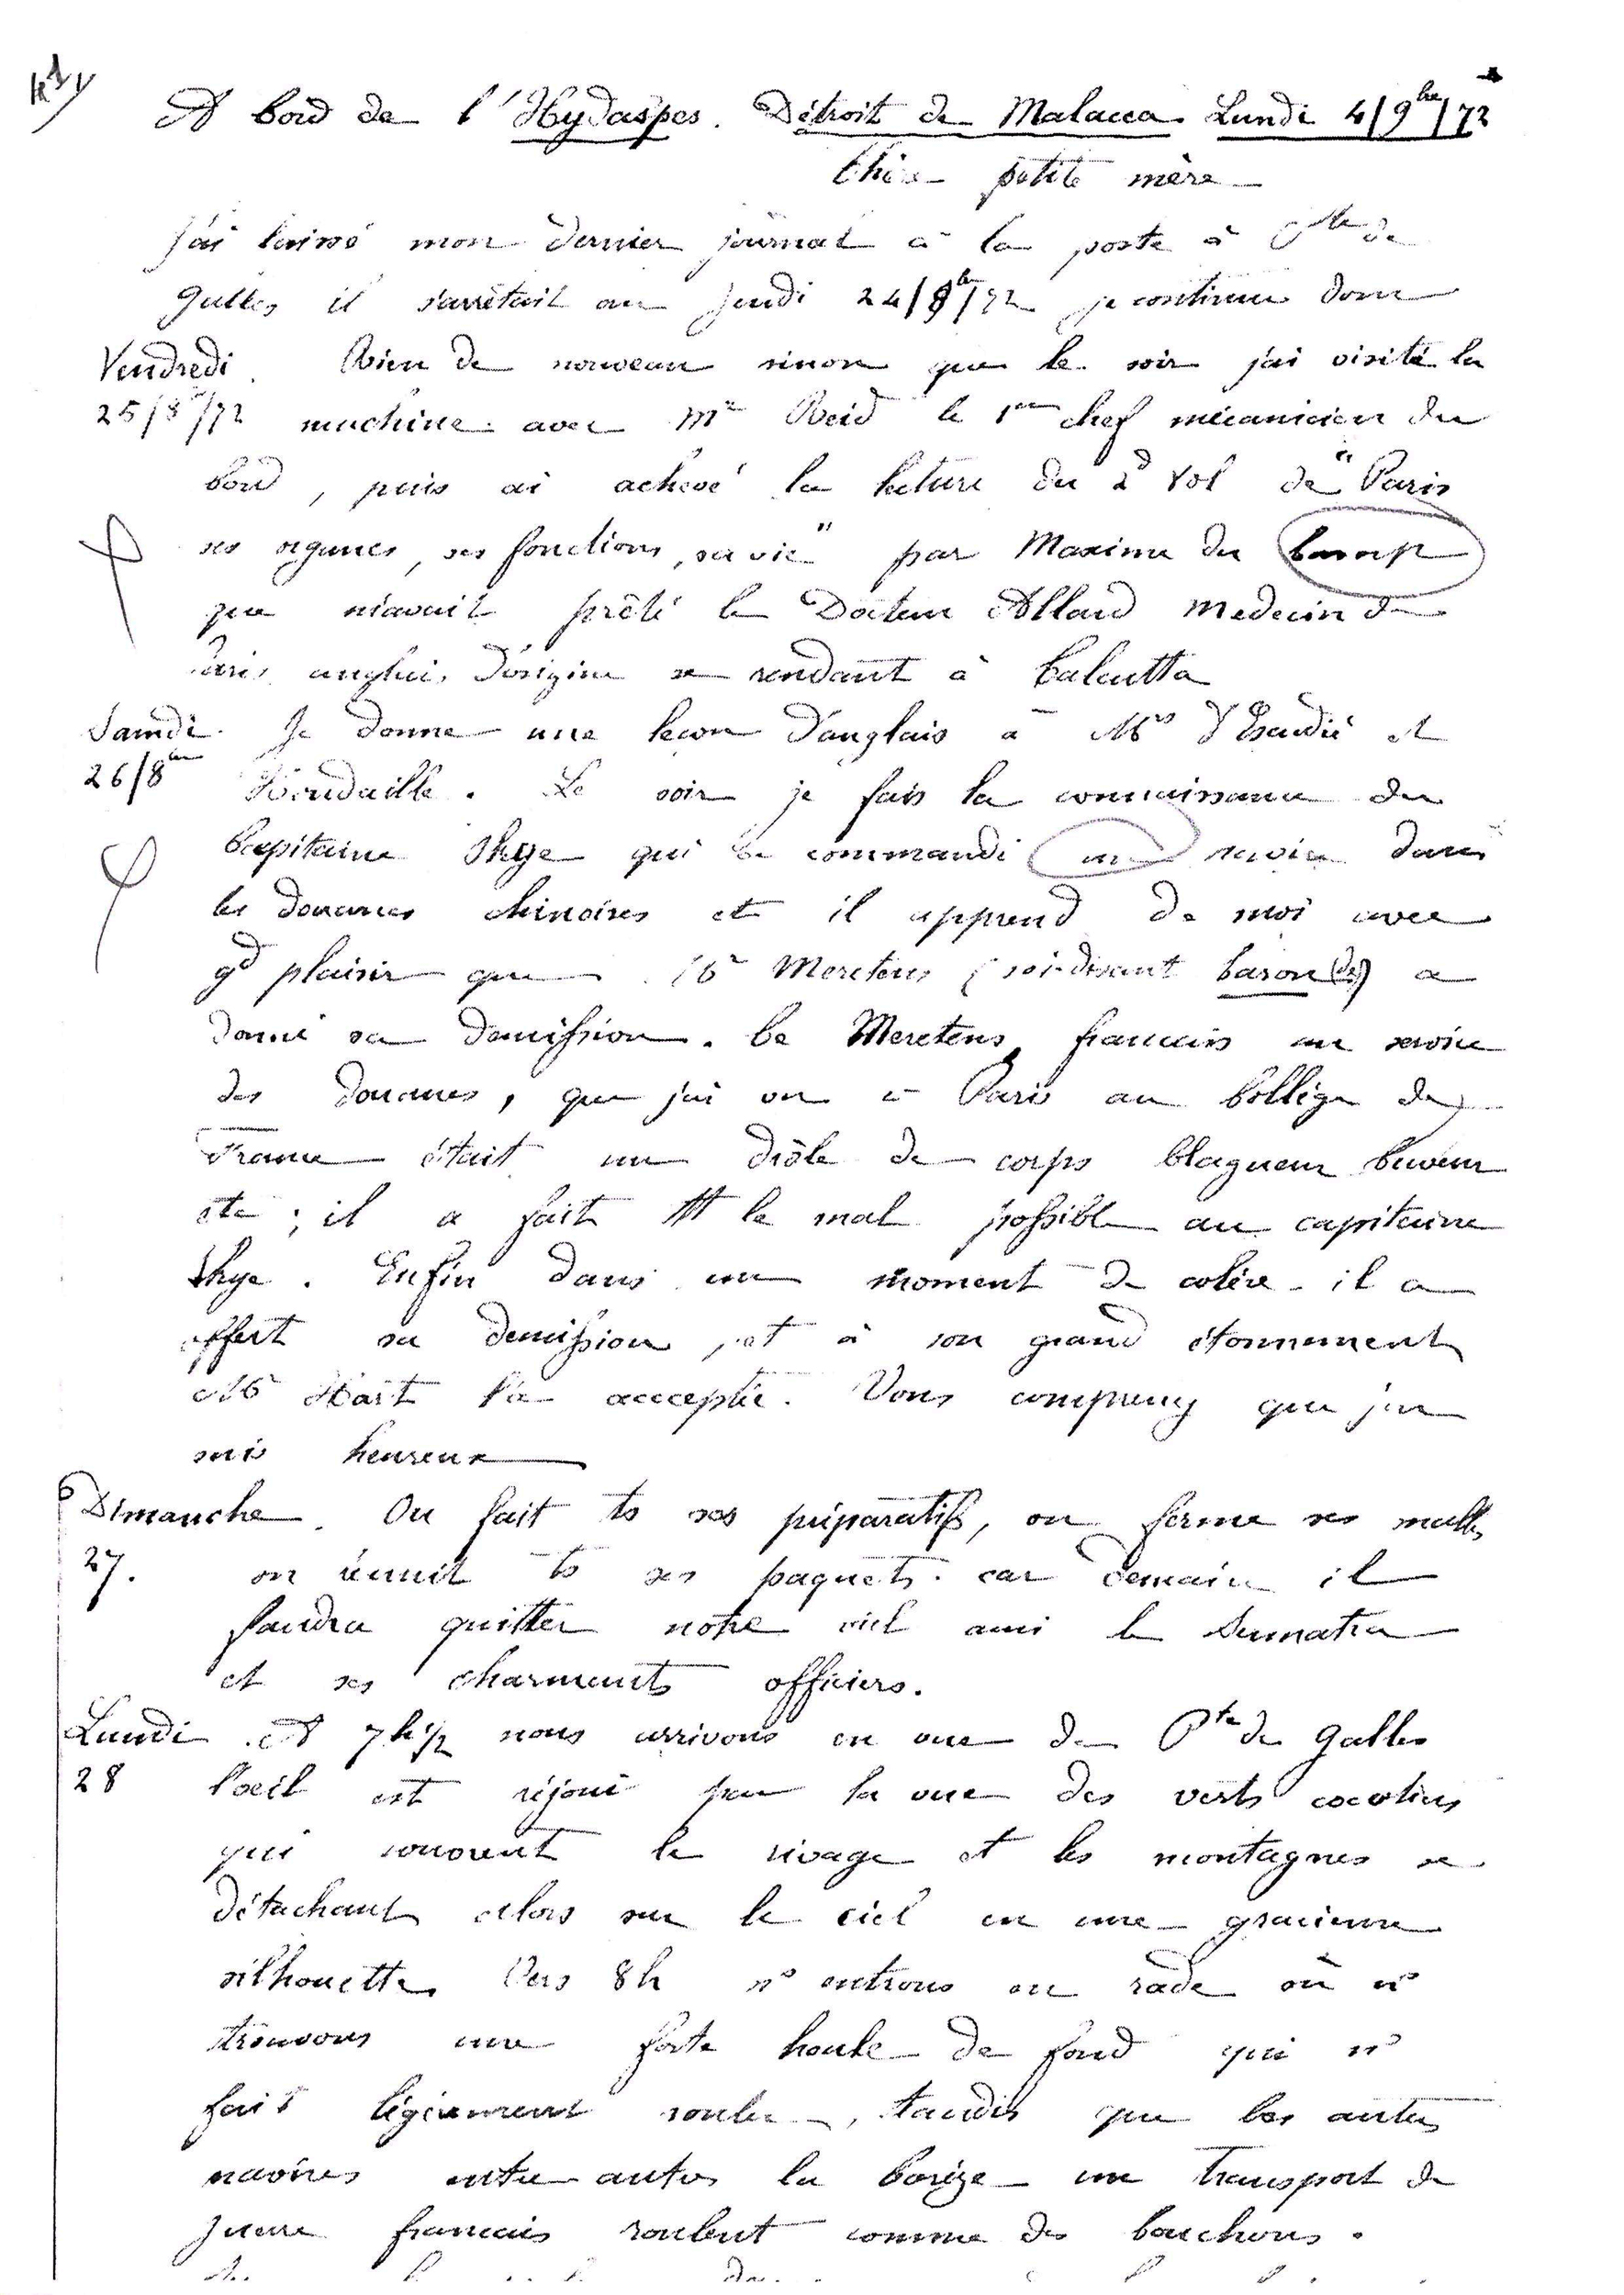 A bord de l'Hydaspes. Détroit de Malacca Lundi 4/9bre/72
Chère petite mère
J'ai laissé mon dernier journal à la poste à Pte de
Galles il s'arrêtait au Jeudi 24/8bre/72 je continue donc
Vendredi. Rien de nouveau sinon que le soir j'ai visité la
25/8bre/72 machine avec Mr Reid le 1er chef mécanicien du
bord, puis ai achevé la lecture du 2d vol de "Paris
ses organes, ses fonctions, sa vie" par Maxime du Camp
que m'avait prêté le Docteur Allard medecin de
Paris anglais d'origine se rendant à Calcutta
Samdi. Je donne une leçon d'anglais à Mrs d'Escudié et
26/8bre Houdaille. Le soir je fais la connaissance du
Capitaine Skye qui commande un navire dans
les douanes chinoises et il apprend de moi avec
gd plaisir que Mr Meretens (soi-disant baron (de)) a
donné sa demission. Ce Meretens, francais au service
des douanes, que j'ai vu à Paris au Collège de
France était un drôle de corps blagueur buveur
etc; il a fait tt le mal possible au capitaine
Skye. Enfin dans un moment de colère il a
offert sa demission, et à son grand étonnement
Mr Hart l'a acceptée. Vous comprenez que j'en
suis heureux
Dimanche. On fait ts ses préparatifs, on ferme ses malles
27. on réunit ts ses paquets car demain il
faudra quitter notre vieil ami le Sumatra
et ses charmants officiers.
Lundi. A 7h1/2 nous arrivons en vue de Pte de Galles
28 l'oeil est réjoui par la vue des verts cocotiers
qui couvrent le rivage et les montagnes se
détachant alors sur le ciel en une gracieuse
silhouette. Vers 8h ns entrons en rade où ns
trouvons une forte houle de fond qui ns
fait légèrement rouler, tandis que les autres
navires entre autres la Corrèze un transport de
guerre francais roulent comme des bouchons.